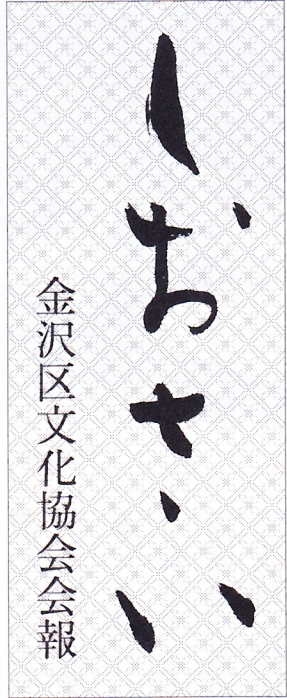 しおさい
金沢区文化協会会報